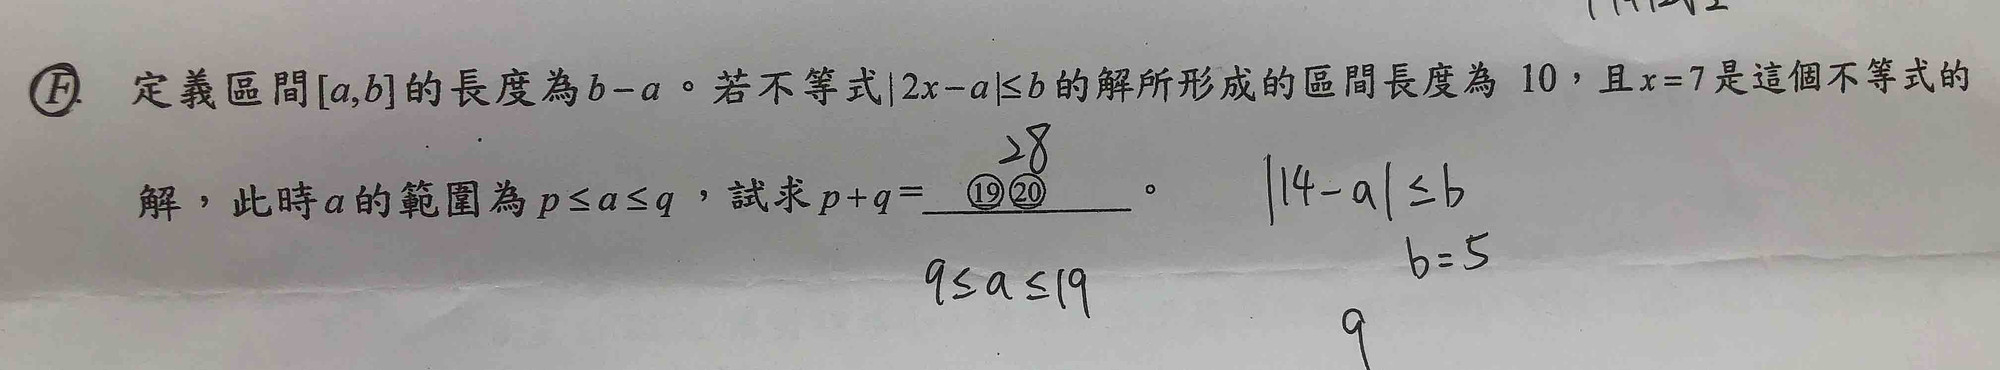 F. 定義區間[a,b]的長度為b-a。若不等式|2x-a|≤b的解所形成的區間長度為 10，且x=7是這個不等式的
28
解，此時a的範圍為p≤a≤q，試求p+q=⑲⑳。
|14-a|≤b
b=5
9≤a≤19
9